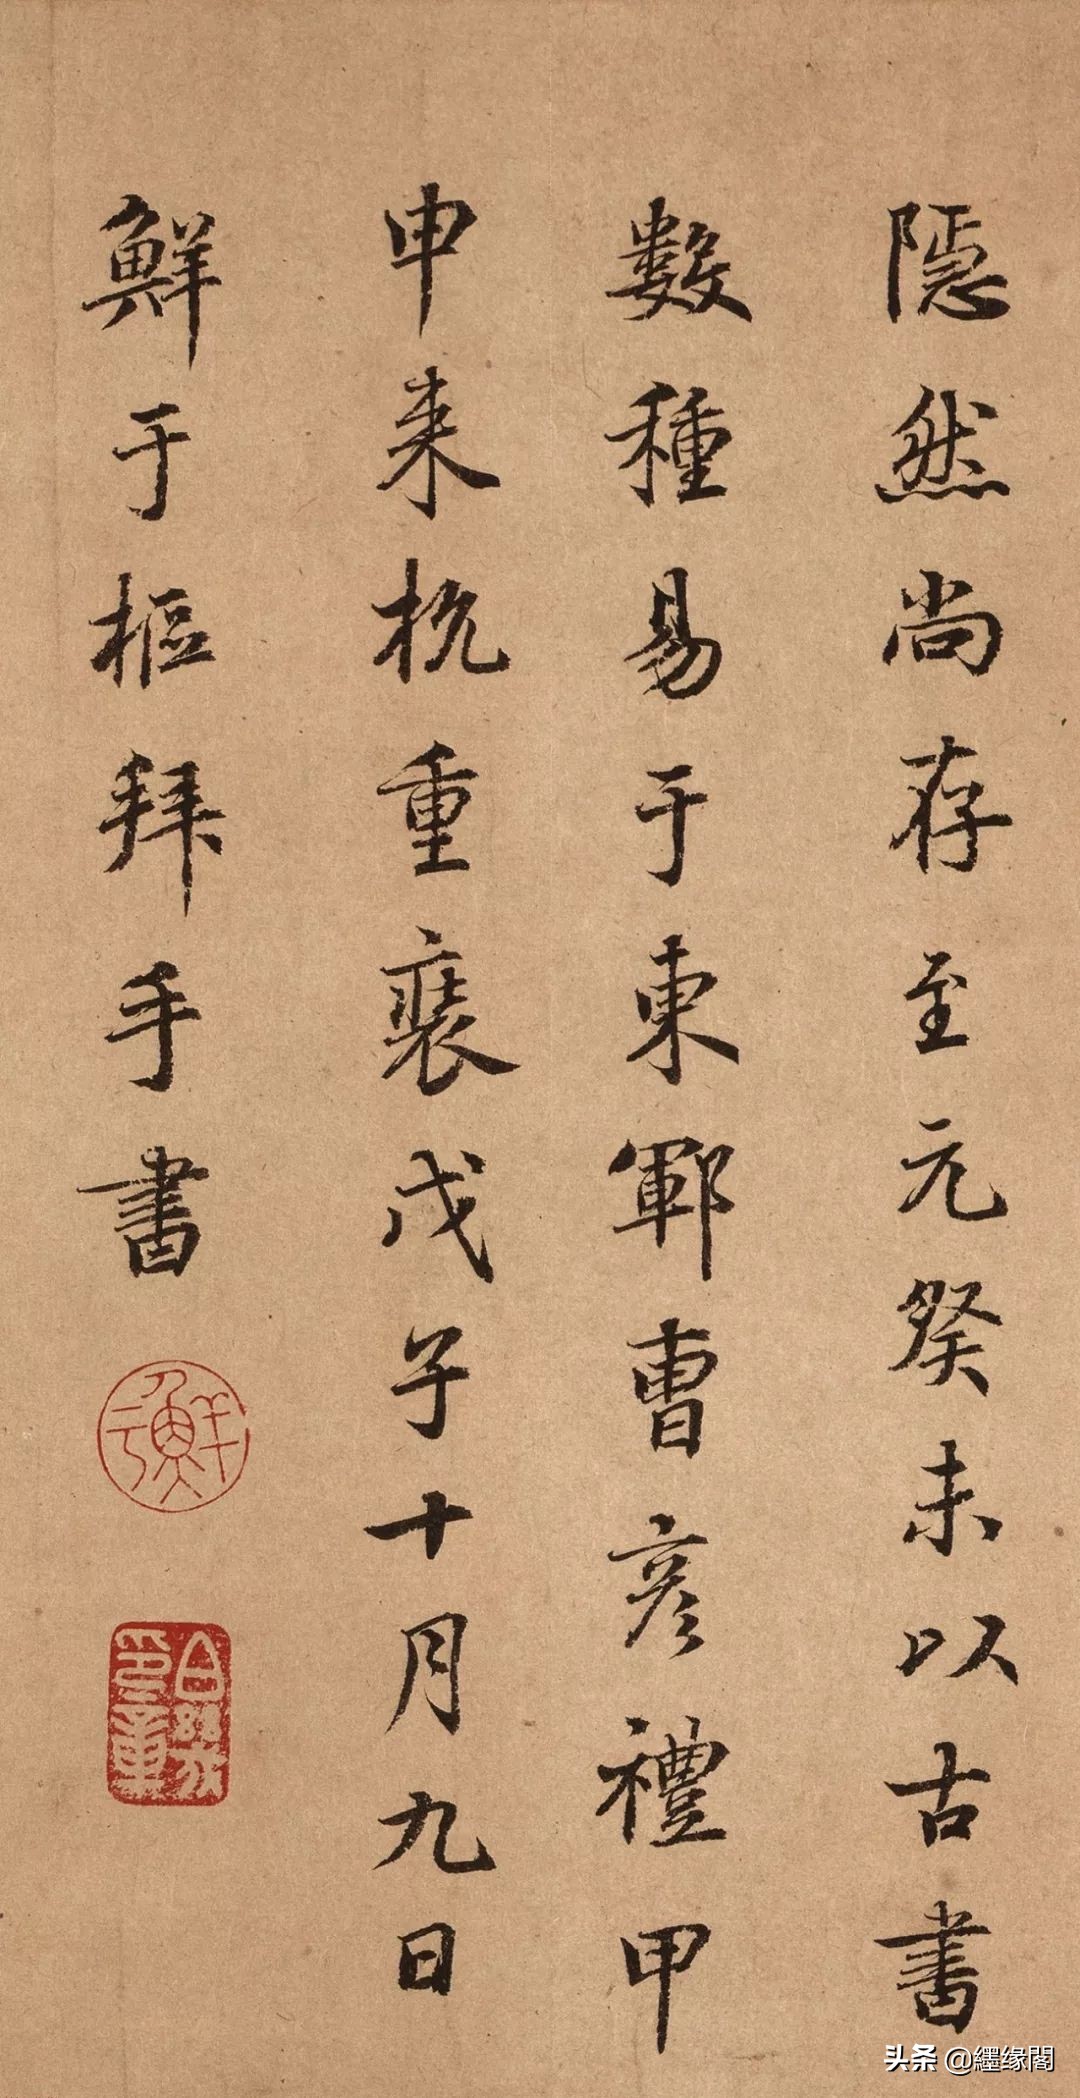 隱然尚存至元癸未以古書
數種易于東鄆曹彦禮甲
申来杭重裝戊子十月九日
鮮于樞拜手書
鮮于
頭条 @纆缘閣